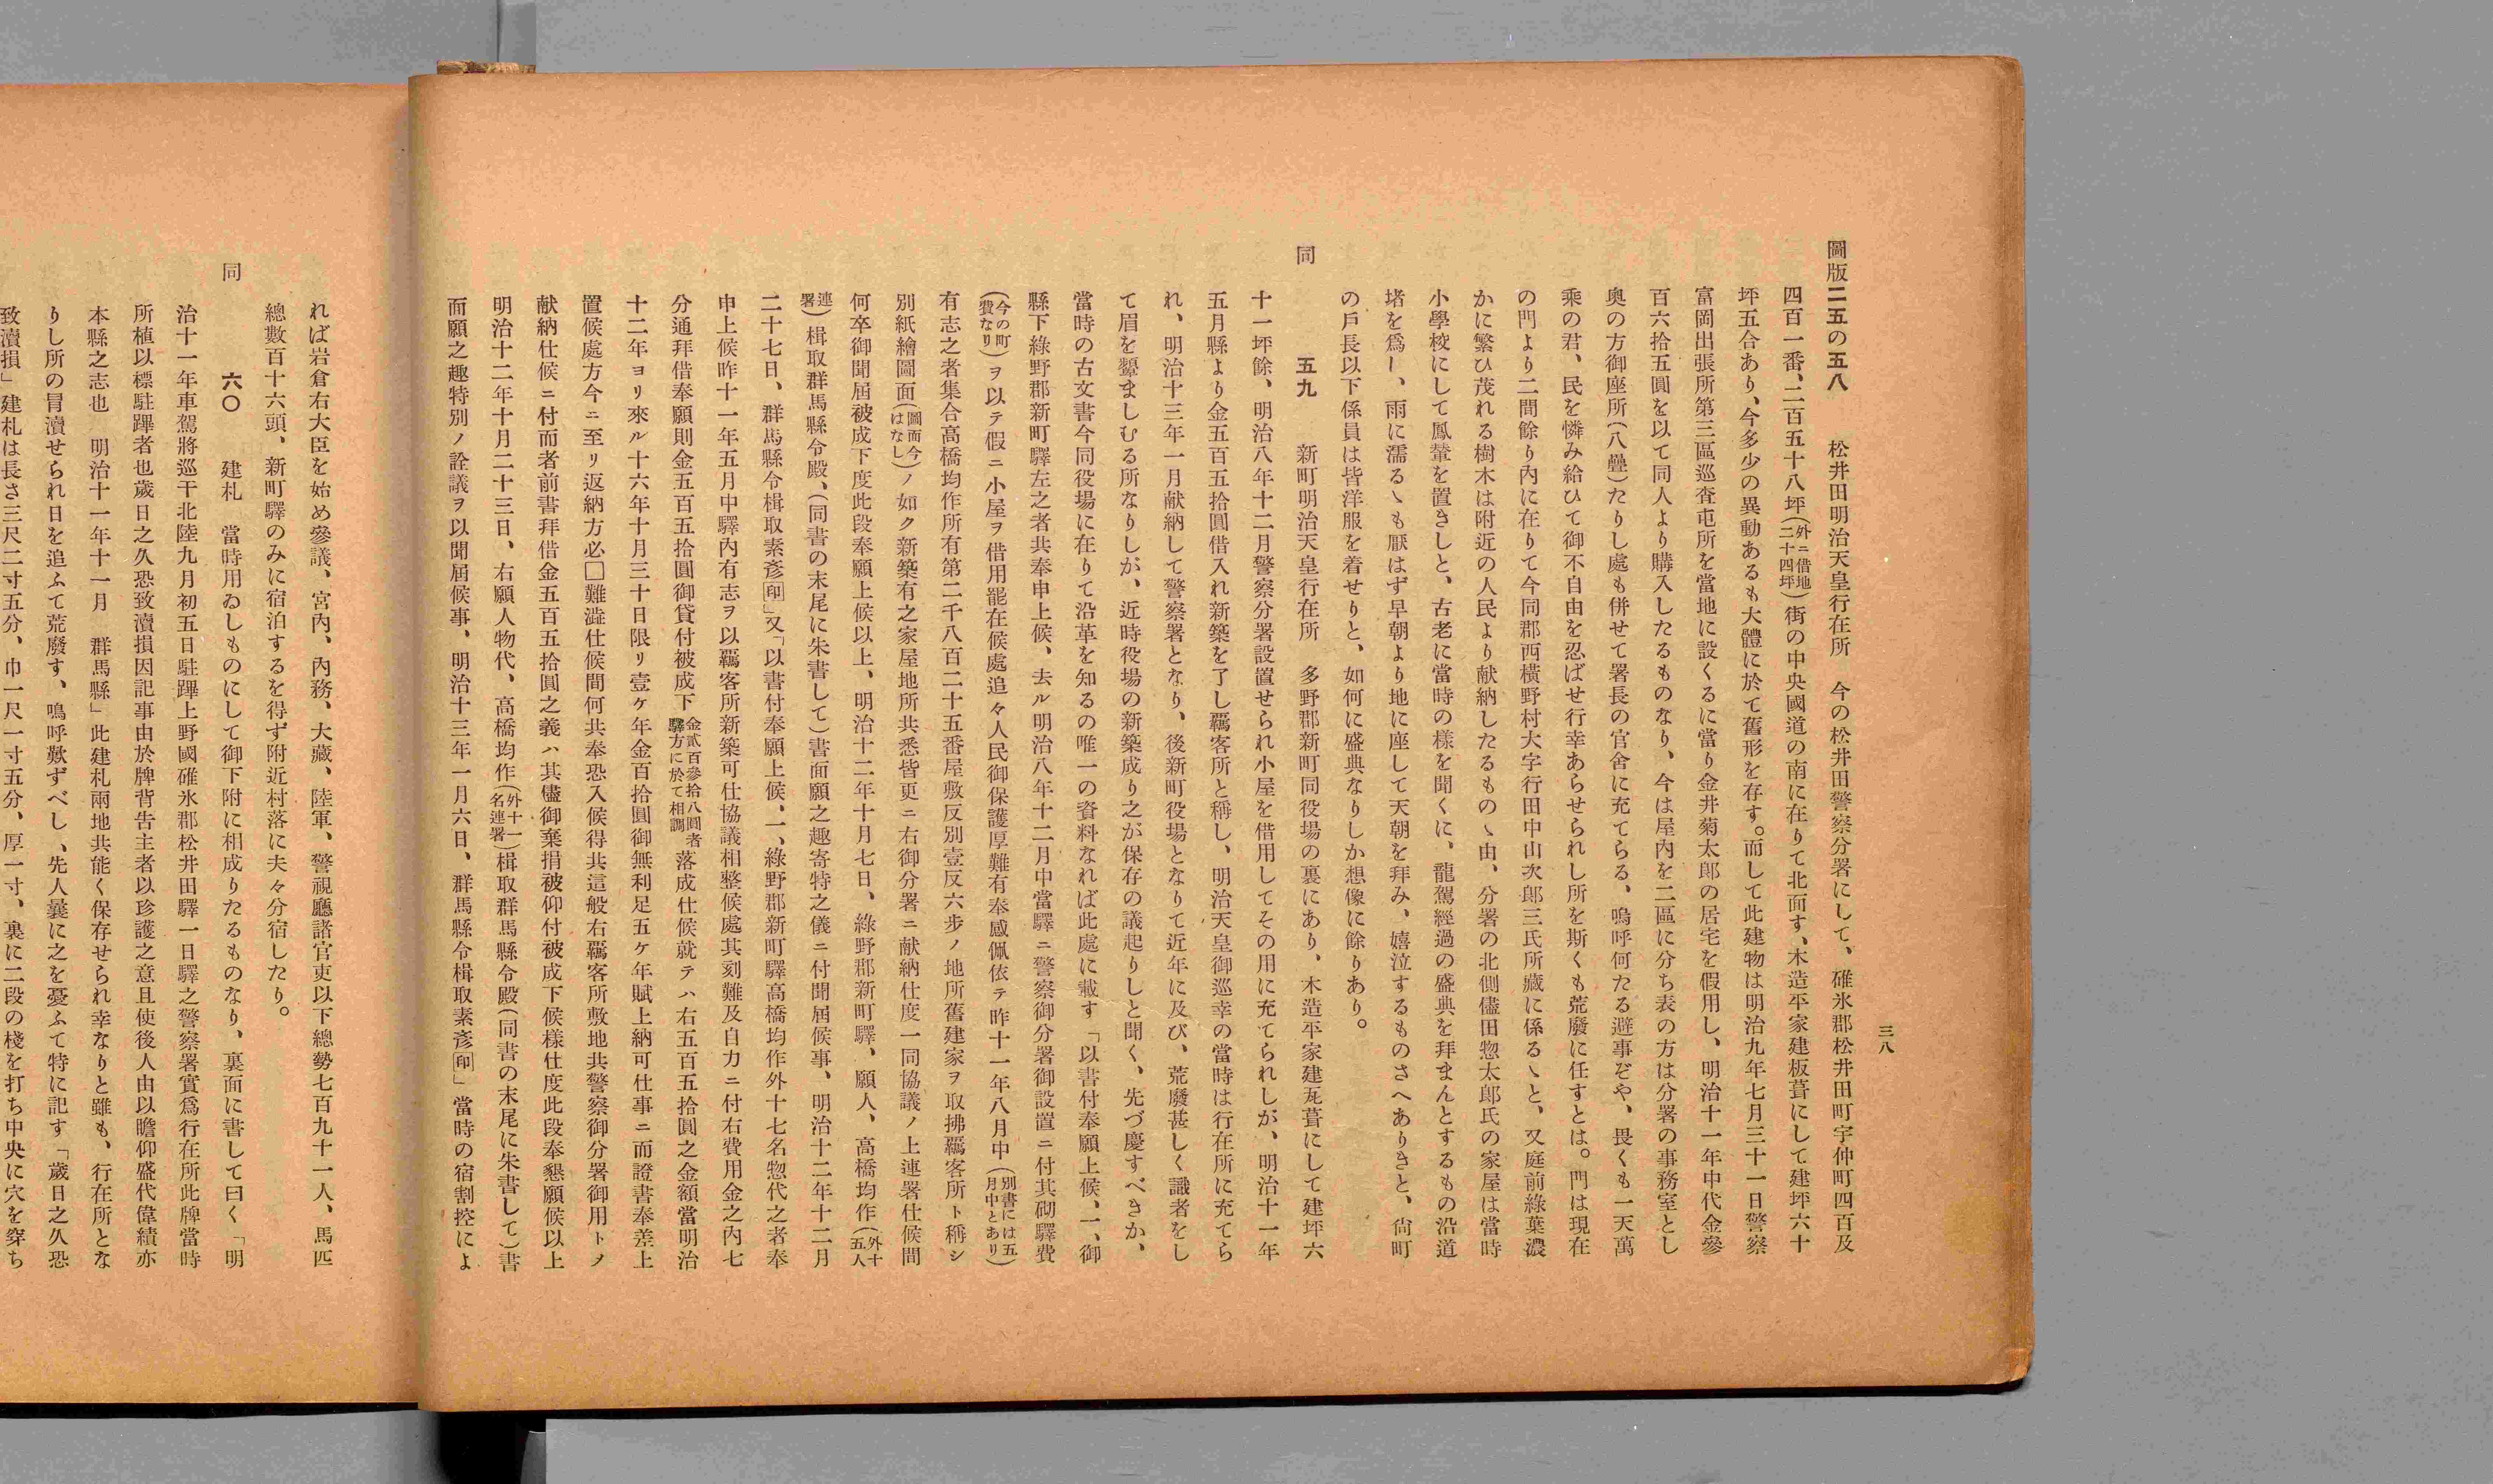 三八
圖版二五の五八　松井田明治天皇行在所　今の松井田警察分署にして、碓氷郡松井田町字仲町四百及
四百一番、二百五十八坪(外ニ借地二十四坪)街の中央國道の南に在りて北面す、木造平家建板葺にして建坪六十
坪五合あり、今多少の異動あるも大體に於て舊形を存す。而して此建物は明治九年七月三十一日警察
富岡出張所第三區巡査屯所を當地に設くるに當り金井菊太郎の居宅を假用し、明治十一年中代金參
百六拾五圓を以て同人より購入したるものなり、今は屋内を二區に分ち表の方は分署の事務室とし
奥の方御座所(八疊)たりし處も併せて署長の官舍に充てらる、嗚呼何たる避事ぞや、畏くも一天萬
乘の君、民を憐み給ひて御不自由を忍ばせ行幸あらせられし所を斯くも荒廢に任すとは。門は現在
の門より二間餘り内に在りて今同郡西横野村大字行田中山次郎三氏所藏に係るゝと、又庭前綠葉濃
かに繁ひ茂れる樹木は附近の人民より献納したるものゝ由、分署の北側儘田惣太郎氏の家屋は當時
小學校にして鳳輦を置きしと、古老に當時の樣を聞くに、龍駕經過の盛典を拜まんとするもの沿道
堵を爲し、雨に濡るゝも厭はず早朝より地に座して天朝を拜み、嬉泣するものさへありきと、尙町
の戶長以下係員は皆洋服を着せりと、如何に盛典なりしか想像に餘りあり。
同　五九　新町明治天皇行在所　多野郡新町同役場の裏にあり、木造平家建瓦葺にして建坪六
十一坪餘、明治八年十二月警察分署設置せられ小屋を借用してその用に充てられしが、明治十一年
五月縣より金五百五拾圓借入れ新築を了し羈客所と稱し、明治天皇御巡幸の當時は行在所に充てら
れ、明治十三年一月献納して警察署となり、後新町役場となりて近年に及び、荒廢甚しく識者をし
て眉を顰ましむる所なりしが、近時役場の新築成り之が保存の議起りしと聞く、先づ慶すべきか、
當時の古文書今同役場に在りて沿革を知るの唯一の資料なれば此處に載す「以書付奉願上候、一、御
縣下綠野郡新町驛左之者共奉申上候、去ル明治八年十二月中當驛ニ警察御分署御設置ニ付其砌驛費
(今の町費なり)ヲ以テ假ニ小屋ヲ借用罷在候處追々人民御保護厚難有奉感佩依テ昨十一年八月中(別書には五月中とあり)
有志之者集合高橋均作所有第二千八百二十五番屋敷反別壹反六步ノ地所舊建家ヲ取拂羈客所ト稱シ
別紙繪圖面(圖面今はなし)ノ如ク新築有之家屋地所共悉皆更ニ右御分署ニ献納仕度一同協議ノ上連署仕候間
何卒御聞屆被成下度此段奉願上候以上、明治十二年十月七日、綠野郡新町驛、願人、高橋均作(外十五人
連署)楫取群馬縣令殿、(同書の末尾に朱書して)書面願之趣寄特之儀ニ付聞屆候事、明治十二年十二月
二十七日、群馬縣令楫取素彥印」又「以書付奉願上候、一、綠野郡新町驛高橋均作外十七名惣代之者奉
申上候昨十一年五月中驛内有志ヲ以羈客所新築可仕協議相整候處其刻難及自力ニ付右費用金之内七
分通拜借奉願則金五百五拾圓御貸付被成下金貳百參拾八圓者驛方に於て相調落成仕候就テハ右五百五拾圓之金額當明治
十二年ヨリ來ル十六年十月三十日限リ壹ケ年金百拾圓御無利足五ケ年賦上納可仕事ニ而證書奉差上
置候處方今ニ至リ返納方必□難澁仕候間何共奉恐入候得共這般右羈客所敷地共警察御分署御用トノ
献納仕候ニ付而者前書拜借金五百五拾圓之義ハ其儘御棄捐被仰付被成下候樣仕度此段奉懇願候以上
明治十二年十月二十三日、右願人物代、高橋均作(外十一名連署)楫取群馬縣令殿(同書の末尾に朱書して)書
面願之趣特別ノ詮議ヲ以聞屆候事、明治十三年一月六日、群馬縣令楫取素彥印」當時の宿割控によ
れば岩倉右大臣を始め參議、宮内、内務、大藏、陸軍、警視廳諸官吏以下總勢七百九十一人、馬匹
總數百十六頭、新町驛のみに宿泊するを得ず附近村落に夫々分宿したり。
同　六〇　建札　當時用ゐしものにして御下附に相成りたるものなり、裏面に書して曰く「明
治十一年車駕將巡干北陸九月初五日駐蹕上野國碓氷郡松井田驛一日驛之警察署實爲行在所此牌當時
所植以標駐蹕者也歲日之久恐致瀆損因記事由於牌背告主者以珍護之意且使後人由以瞻仰盛代偉績亦
本縣之志也　明治十一年十一月　群馬縣」此建札兩地共能く保存せられ幸なりと雖も、行在所とな
りし所の冒瀆せられ日を追ふて荒廢す、嗚呼歎ずべし、先人曩に之を憂ふて特に記す「歲日之久恐
致瀆損」建札は長さ三尺二寸五分、巾一尺一寸五分、厚一寸、裏に二段の棧を打ち中央に穴を穿ち